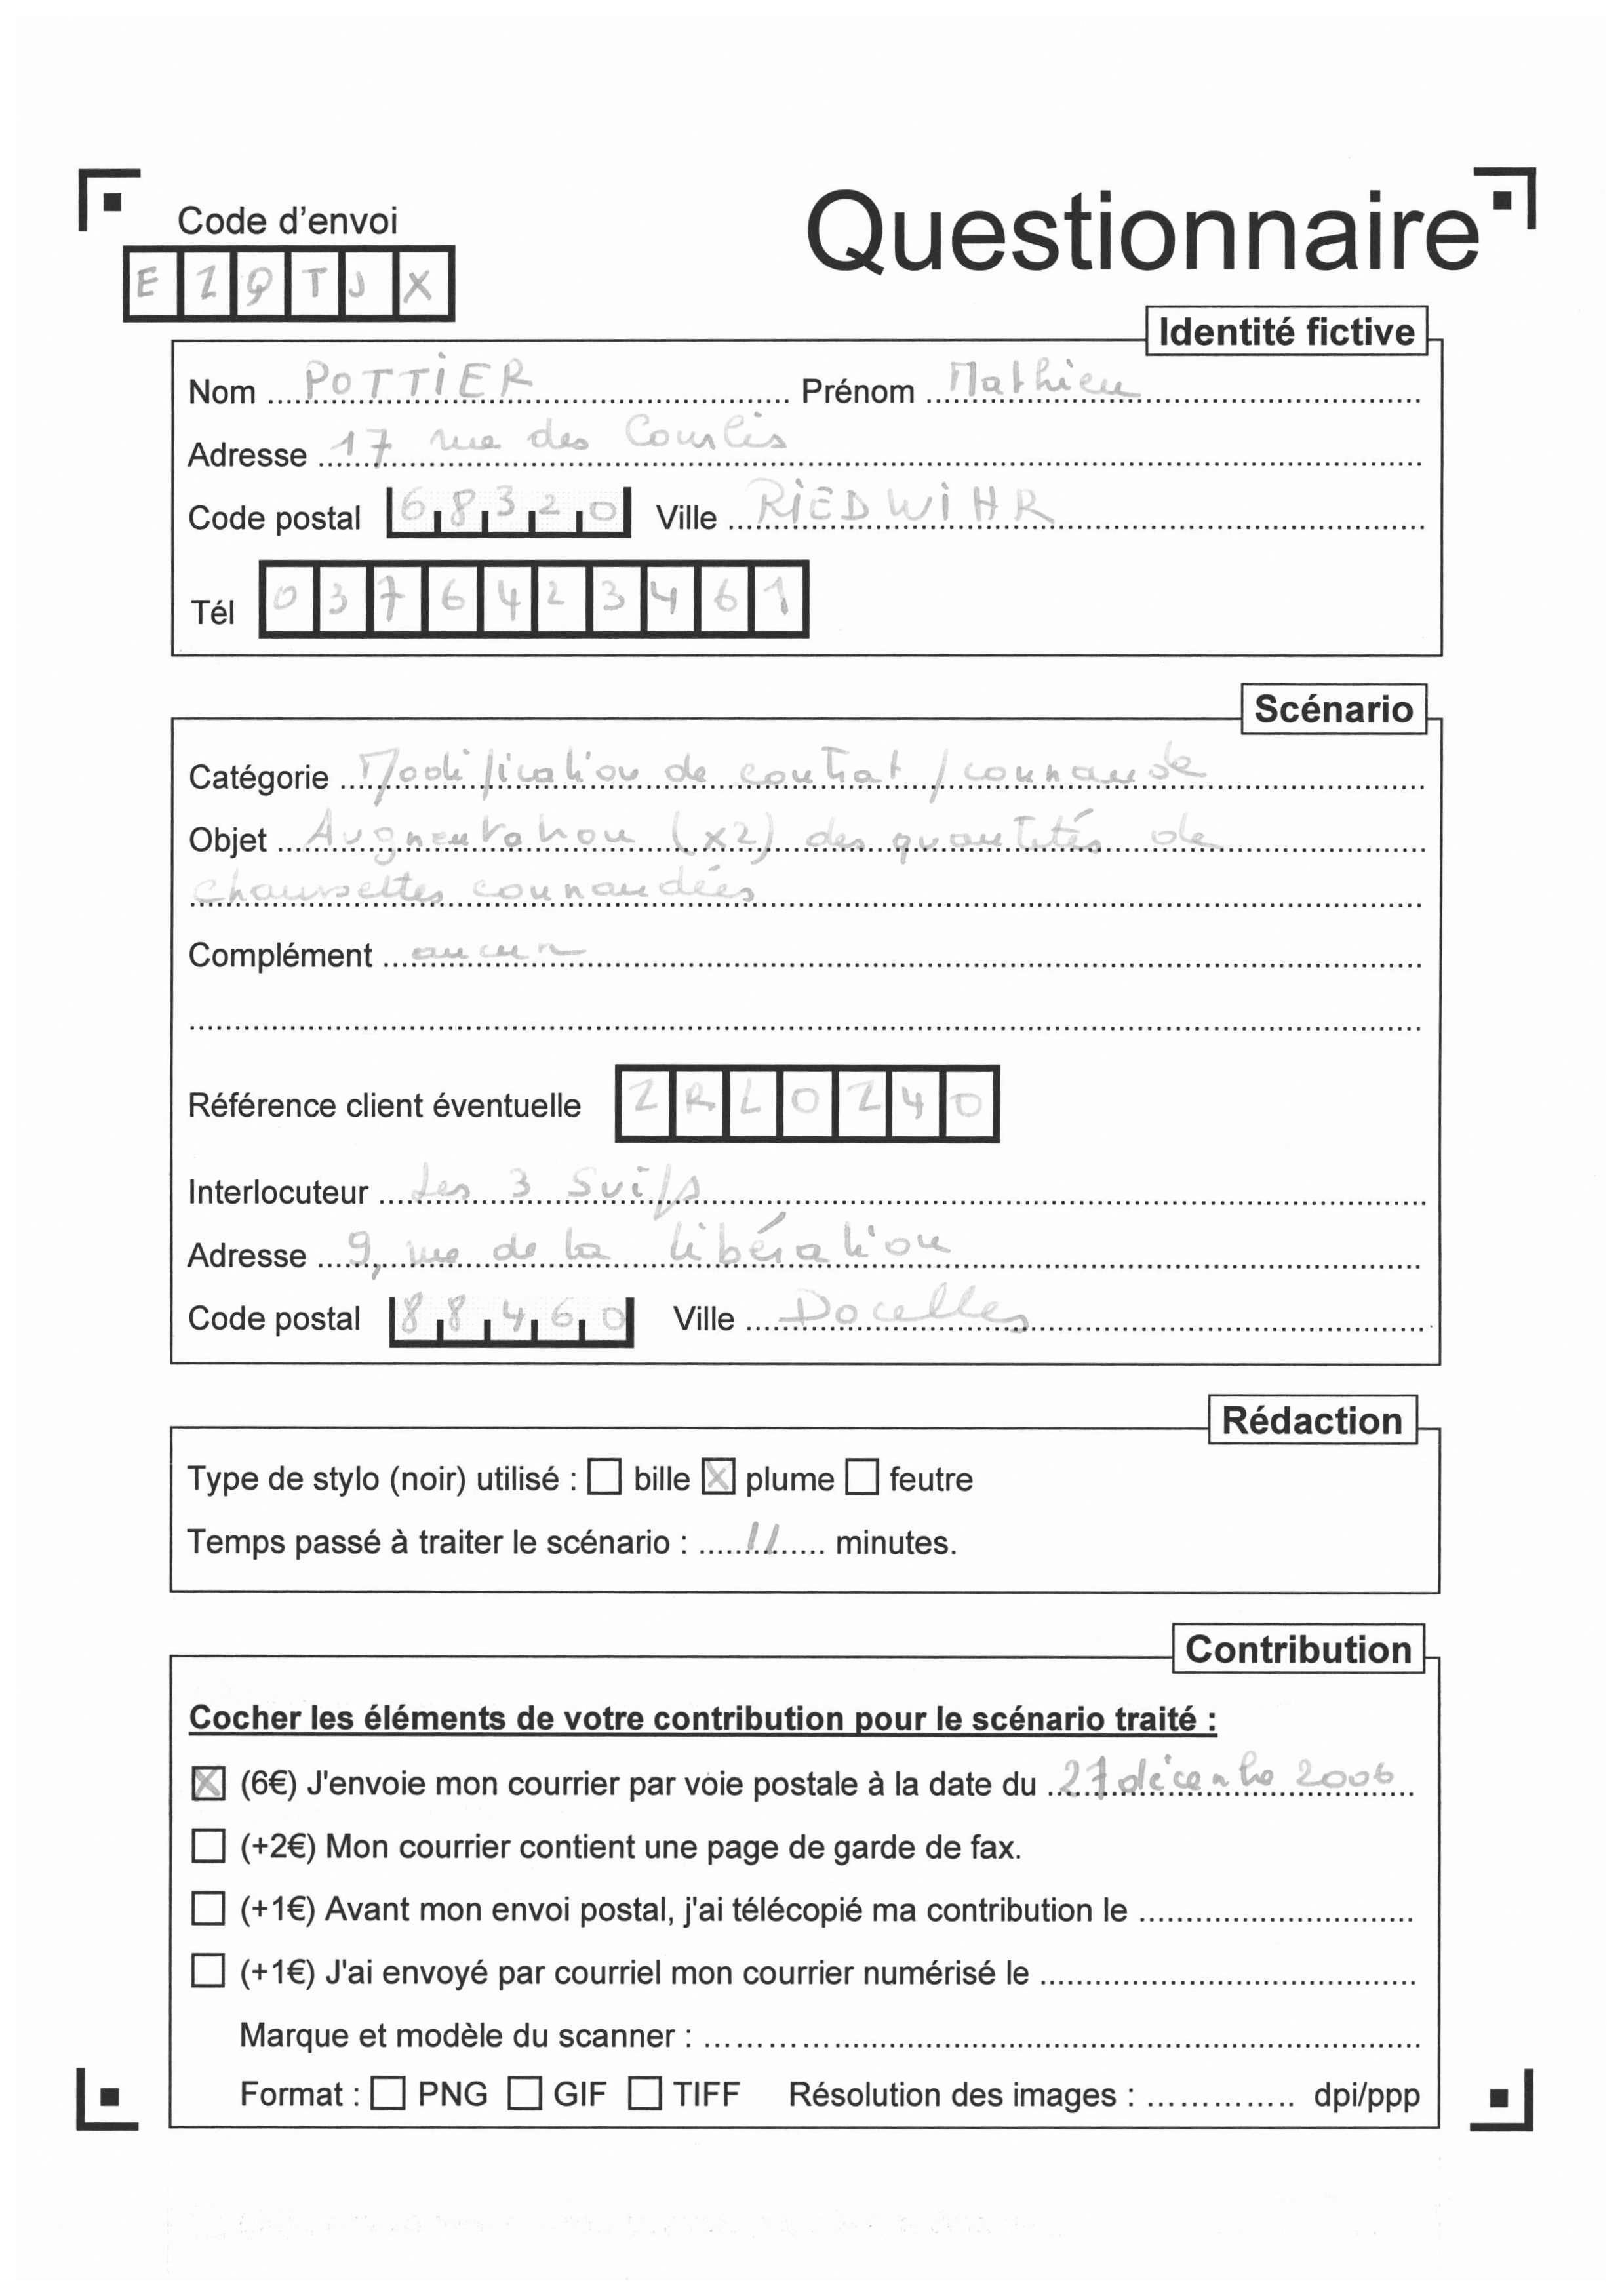 Code d'envoi
Questionnaire
E Z Q T J X
Identité fictive
Nom POTTIER Prénom Mathieu
Adresse 17 rue des Courlis
Code postal 68320 Ville RIEDWIHR
Tél 0376423461
Scénario
Catégorie Modification de contrat / commande
Objet Augmentation (x2) des quantités de
chaussettes commandées
Complément aucun
Référence client éventuelle ZRLOZ40
Interlocuteur Les 3 Suifs
Adresse 9, rue de la libération
Code postal 88460 Ville Docelles
Rédaction
Type de stylo (noir) utilisé : ☐ bille ☒ plume ☐ feutre
Temps passé à traiter le scénario : 11 minutes.
Contribution
Cocher les éléments de votre contribution pour le scénario traité :
☒ (6€) J'envoie mon courrier par voie postale à la date du 27 décembre 2006
☐ (+2€) Mon courrier contient une page de garde de fax.
☐ (+1€) Avant mon envoi postal, j'ai télécopié ma contribution le
☐ (+1€) J'ai envoyé par courriel mon courrier numérisé le
Marque et modèle du scanner :
Format : ☐ PNG ☐ GIF ☐ TIFF Résolution des images : dpi/ppp